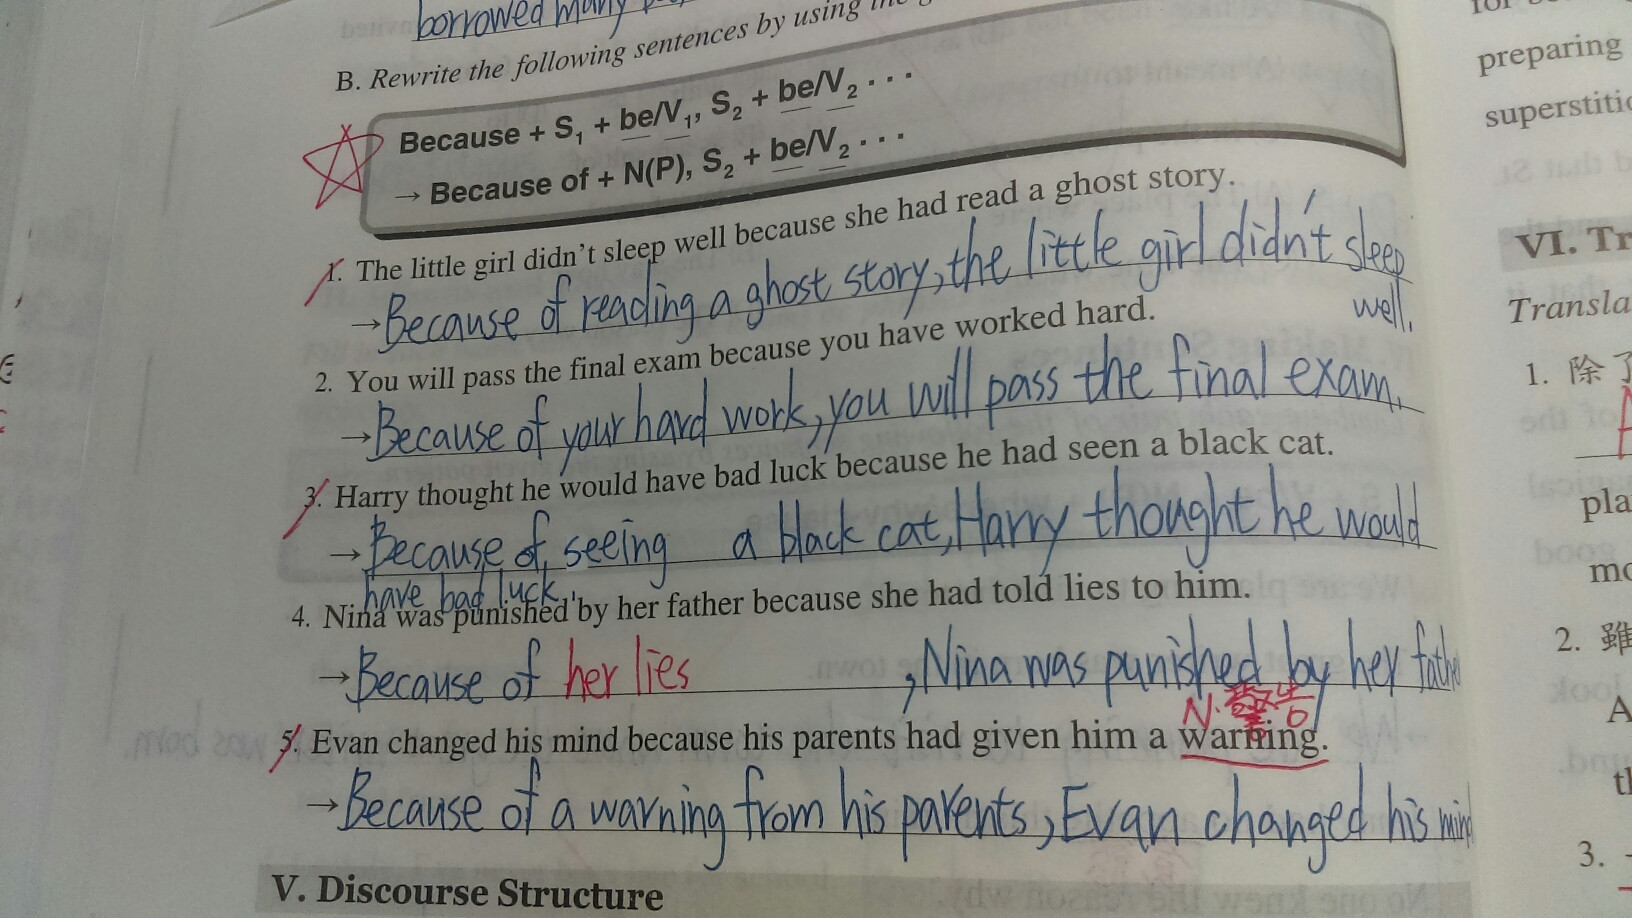 borrowed many
B. Rewrite the following sentences by using the
Because + S1 + be/V1, S2 + be/V2 . . .
→ Because of + N(P), S2 + be/V2 . . .
1. The little girl didn't sleep well because she had read a ghost story.
→ Because of reading a ghost story, the little girl didn't sleep
well.
2. You will pass the final exam because you have worked hard.
→ Because of your hard work, you will pass the final exam.
3. Harry thought he would have bad luck because he had seen a black cat.
→ Because of seeing a black cat, Harry thought he would
have bad luck.
4. Nina was punished by her father because she had told lies to him.
→ Because of her lies, Nina was punished by her father
N. 警告
5. Evan changed his mind because his parents had given him a warning.
→ Because of a warning from his parents, Evan changed his mind
V. Discourse Structure
preparing
superstitio
VI. Tr
Transla
1. 除了
pla
mo
2. 雖
A
th
3.